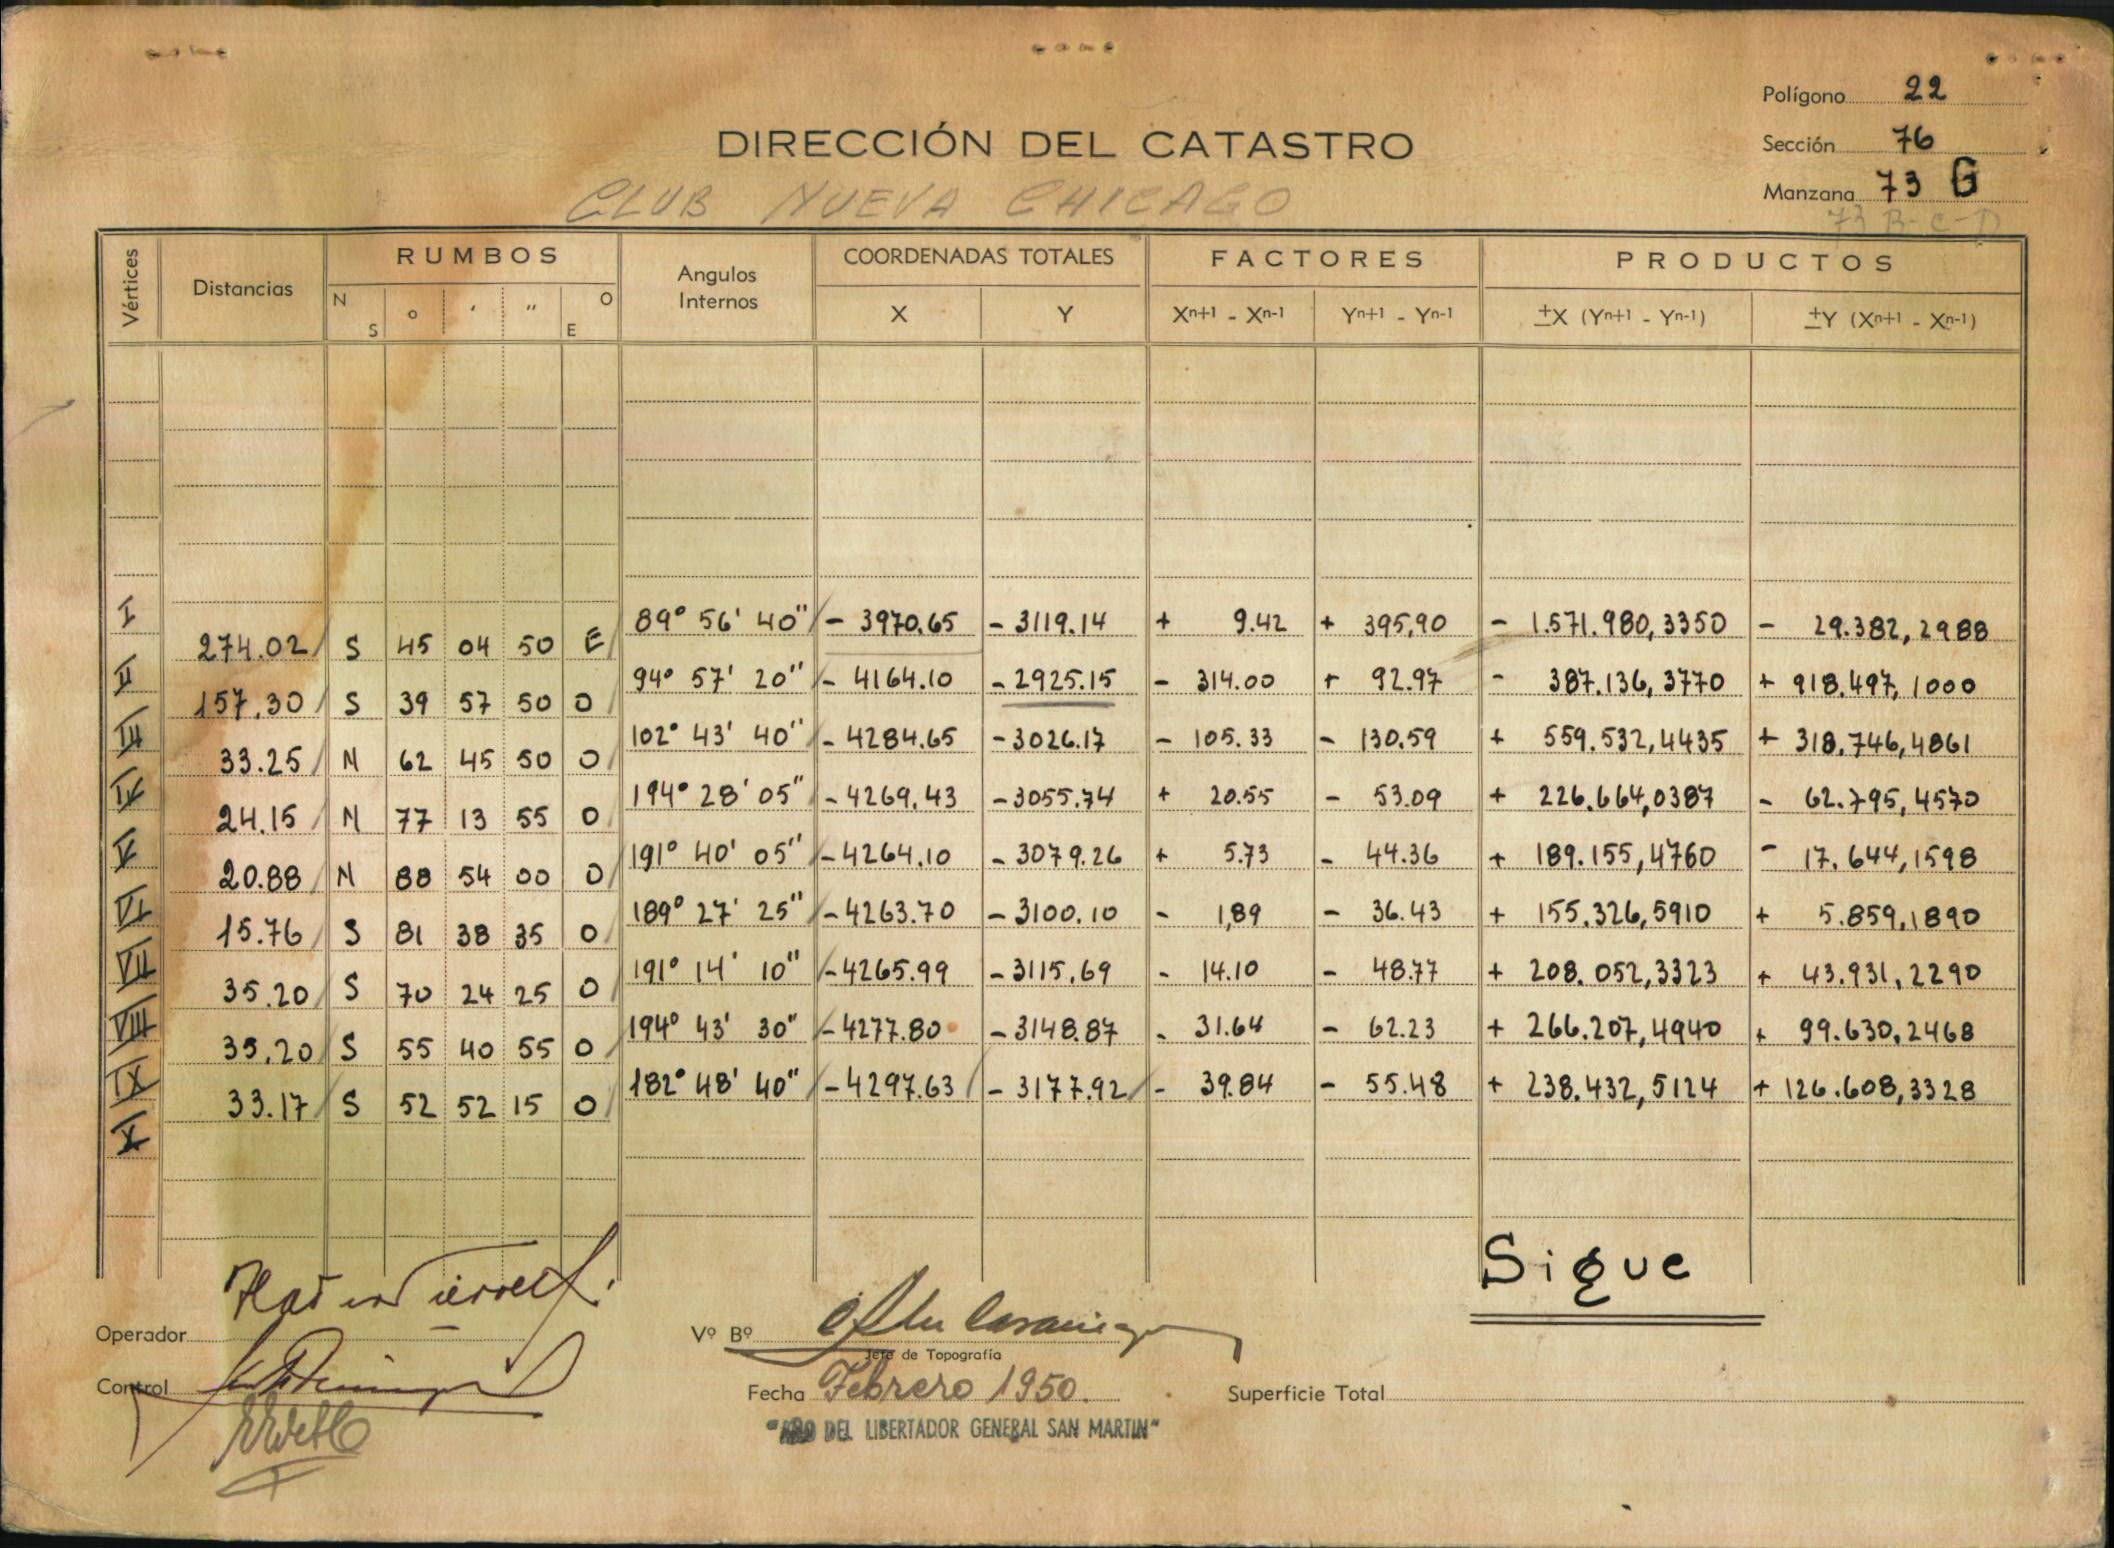 Polígono 22
DIRECCIÓN DEL CATASTRO
Sección 76
CLUB NUEVA CHICAGO
Manzana 73 G
73 B-C-D
Vértices Distancias RUMBOS Angulos Internos COORDENADAS TOTALES FACTORES PRODUCTOS
N S ° ' " O E X Y Xn+1 - Xn-1 Yn+1 - Yn-1 ±X (Yn+1 - Yn-1) ±Y (Xn+1 - Xn-1)
I 89° 56' 40" - 3970.65 - 3119.14 + 9.42 + 395,90 - 1.571.980,3350 - 29.382,2988
274.02 S 45 04 50 E
II 94° 57' 20" - 4164.10 - 2925.15 - 314.00 + 92.97 - 387.136,3770 + 918.497,1000
157.30 S 39 57 50 O
III 102° 43' 40" - 4284.65 - 3026.17 - 105.33 - 130.59 + 559.532,4435 + 318.746,4861
33.25 N 62 45 50 O
IV 194° 28' 05" - 4269.43 - 3055.74 + 20.55 - 53.09 + 226.664,0387 - 62.795,4570
24.15 N 77 13 55 O
V 191° 40' 05" - 4264.10 - 3079.26 + 5.73 - 44.36 + 189.155,4760 - 17.644,1598
20.88 N 88 54 00 O
VI 189° 27' 25" - 4263.70 - 3100.10 - 1,89 - 36.43 + 155.326,5910 + 5.859,1890
15.76 S 81 38 35 O
VII 191° 14' 10" - 4265.99 - 3115.69 - 14.10 - 48.77 + 208.052,3323 + 43.931,2290
35.20 S 70 24 25 O
VIII 194° 43' 30" - 4277.80 - 3148.87 - 31.64 - 62.23 + 266.207,4940 + 99.630,2468
35.20 S 55 40 55 O
IX 182° 48' 40" - 4297.63 - 3177.92 - 39.84 - 55.48 + 238.432,5124 + 126.608,3328
33.17 S 52 52 15 O
X
Sigue
Operador
Vº Bº
Jefe de Topografía
Control
Fecha Febrero 1950.
Superficie Total
"AÑO DEL LIBERTADOR GENERAL SAN MARTIN"